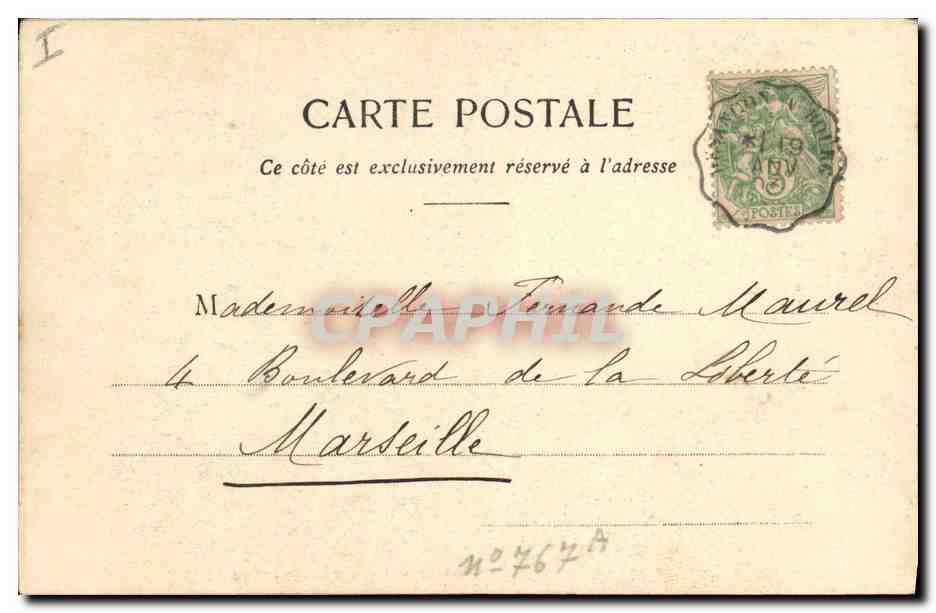 I
CARTE POSTALE
Ce côté est exclusivement réservé à l'adresse
19
POSTES
Mademoiselle Fernande Maurel
CPAPHIL
4 Boulevard de la Liberté
Marseille
nº 767 A